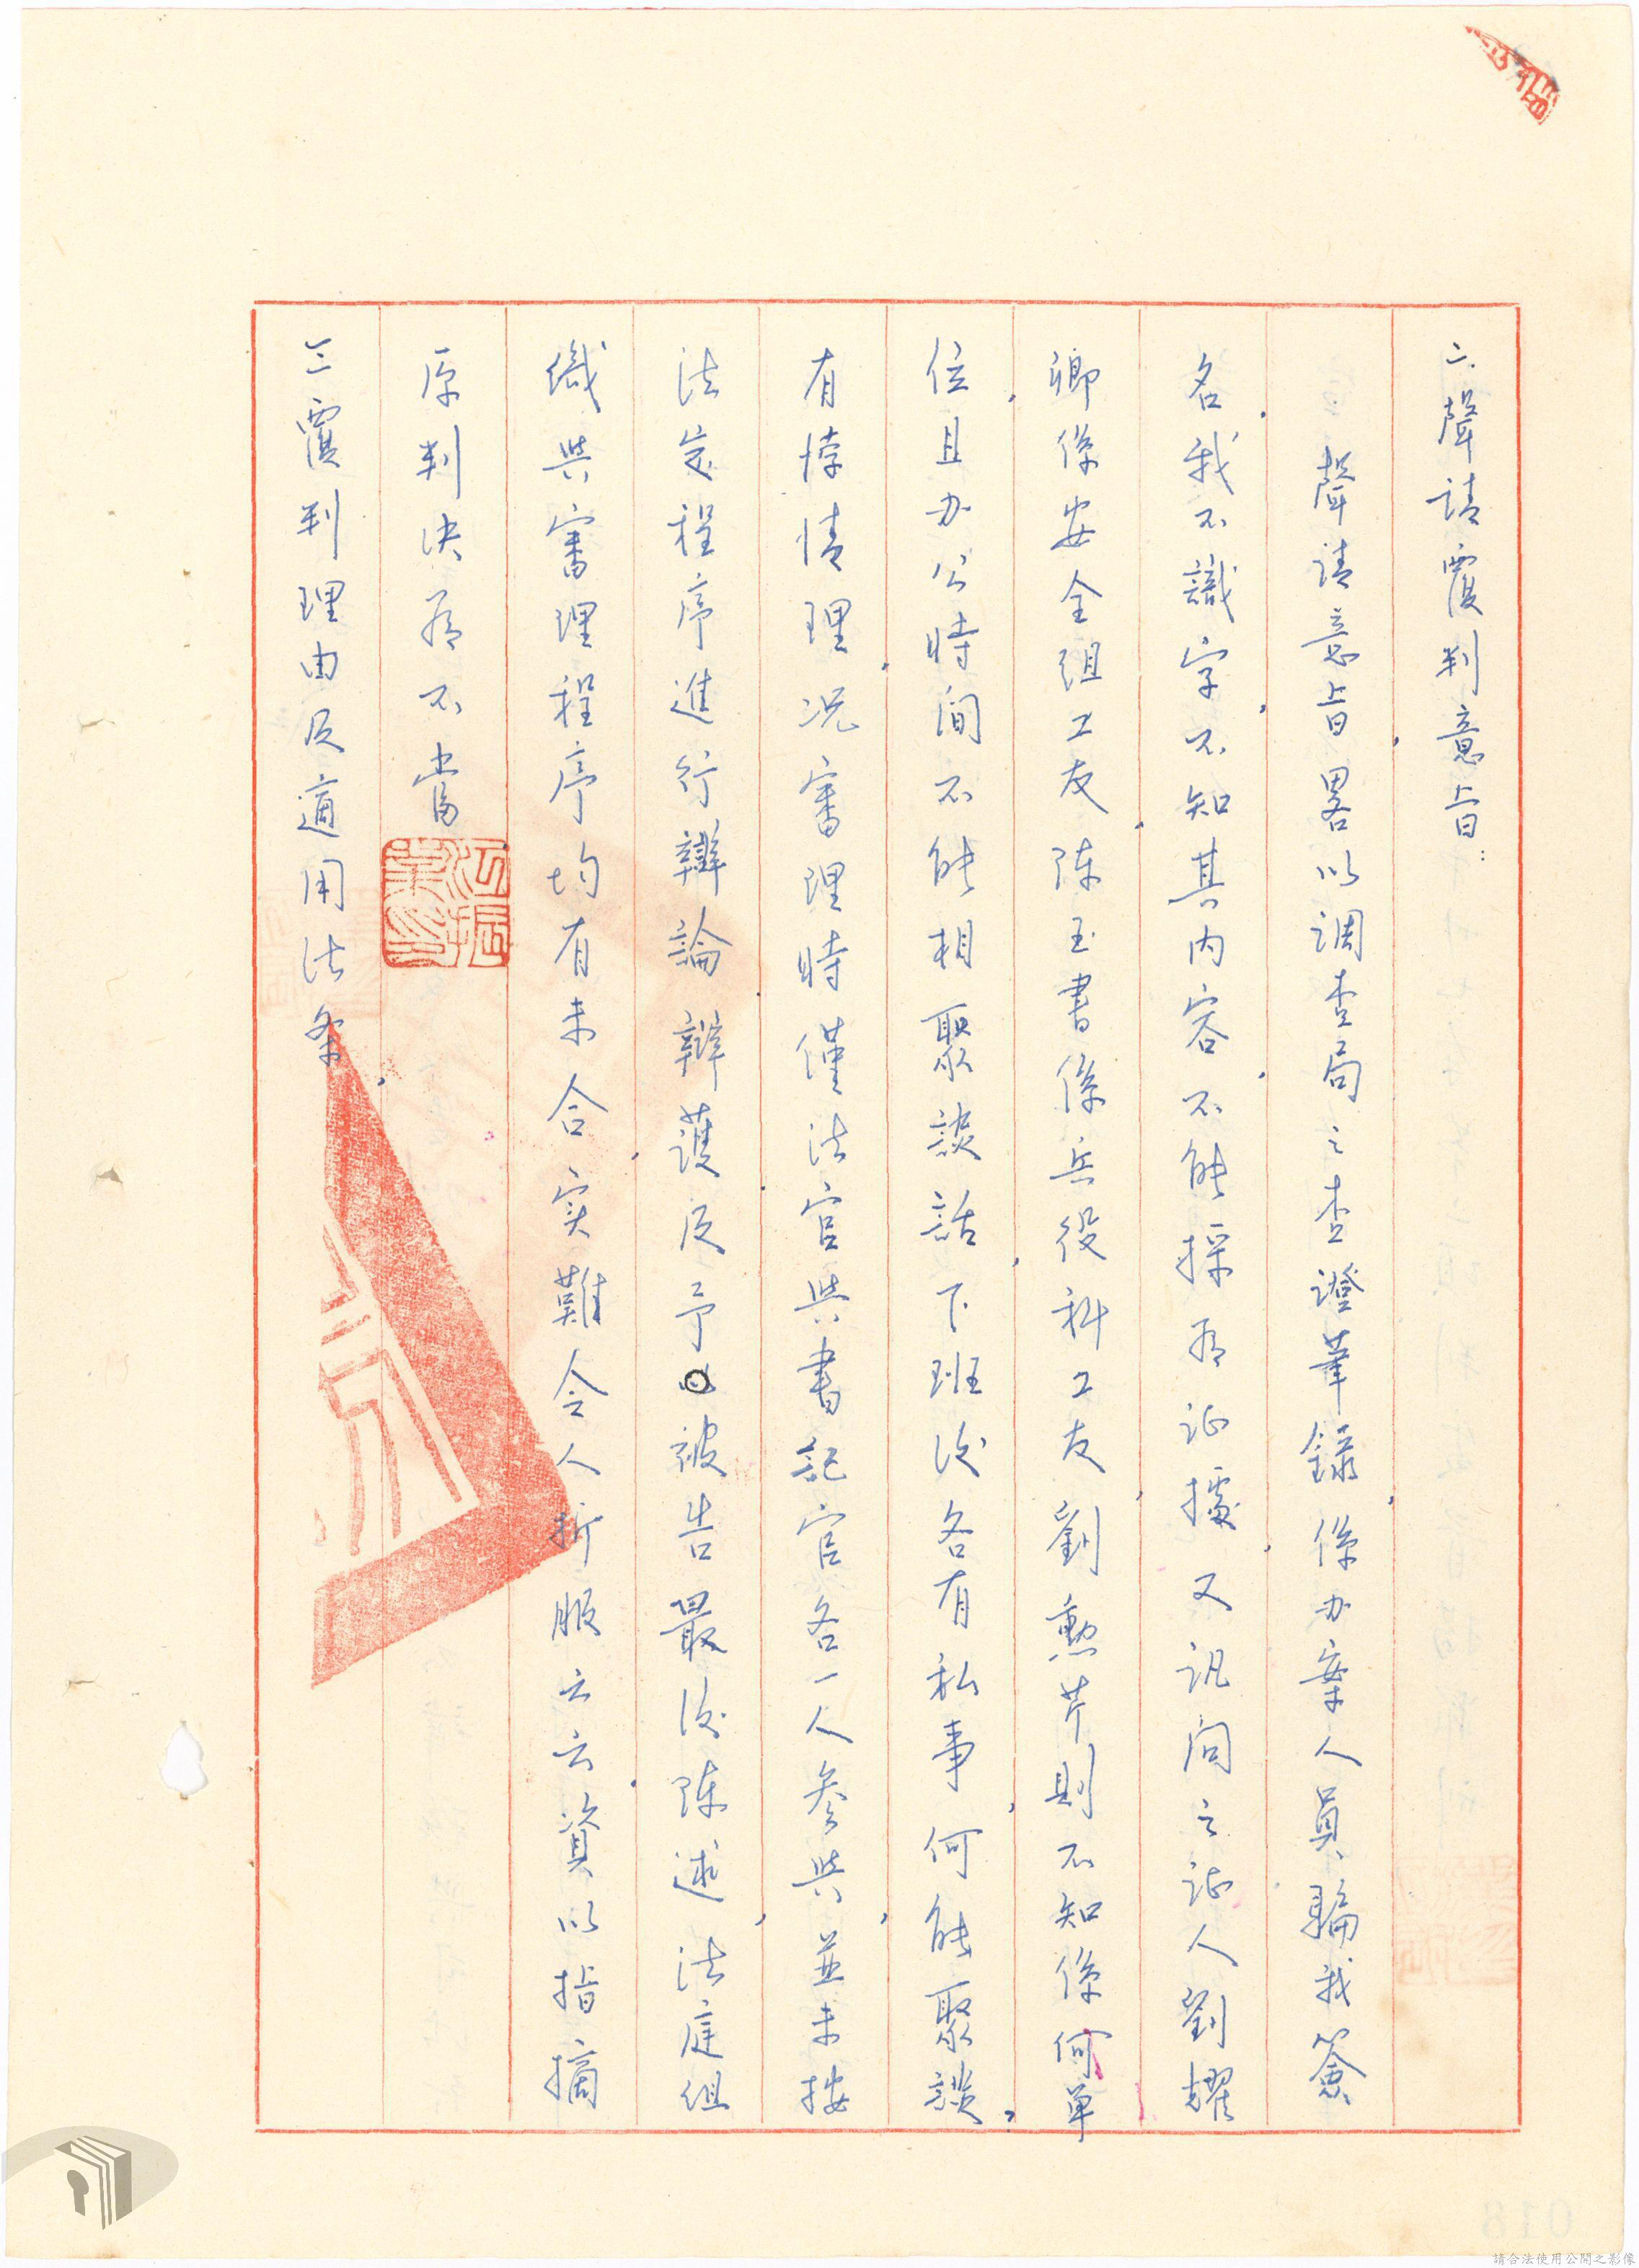 二、聲請覆判意旨：
聲請意旨畧以調查局之查證筆錄，係办案人員騙我簽
名，我不識字，不知其內容，不能採為证據，又讯问之证人劉耀
卿係安全组工友，陈玉書係兵役科工友，劉勲芹則不知係何单
位，且办公時间不能相聚談話，下班後各有私事，何能聚談，
有悖情理，况審理時僅法官與書記官各一人参與，並未按
法定程序進行辯論，辩護，及予被告最後陈述，法庭组
織與審理程序均有未合，实難令人折服云云，資以指摘
原判决為不當
三覆判理由及適用法条，
江振
業印
請合法使用公開之影像